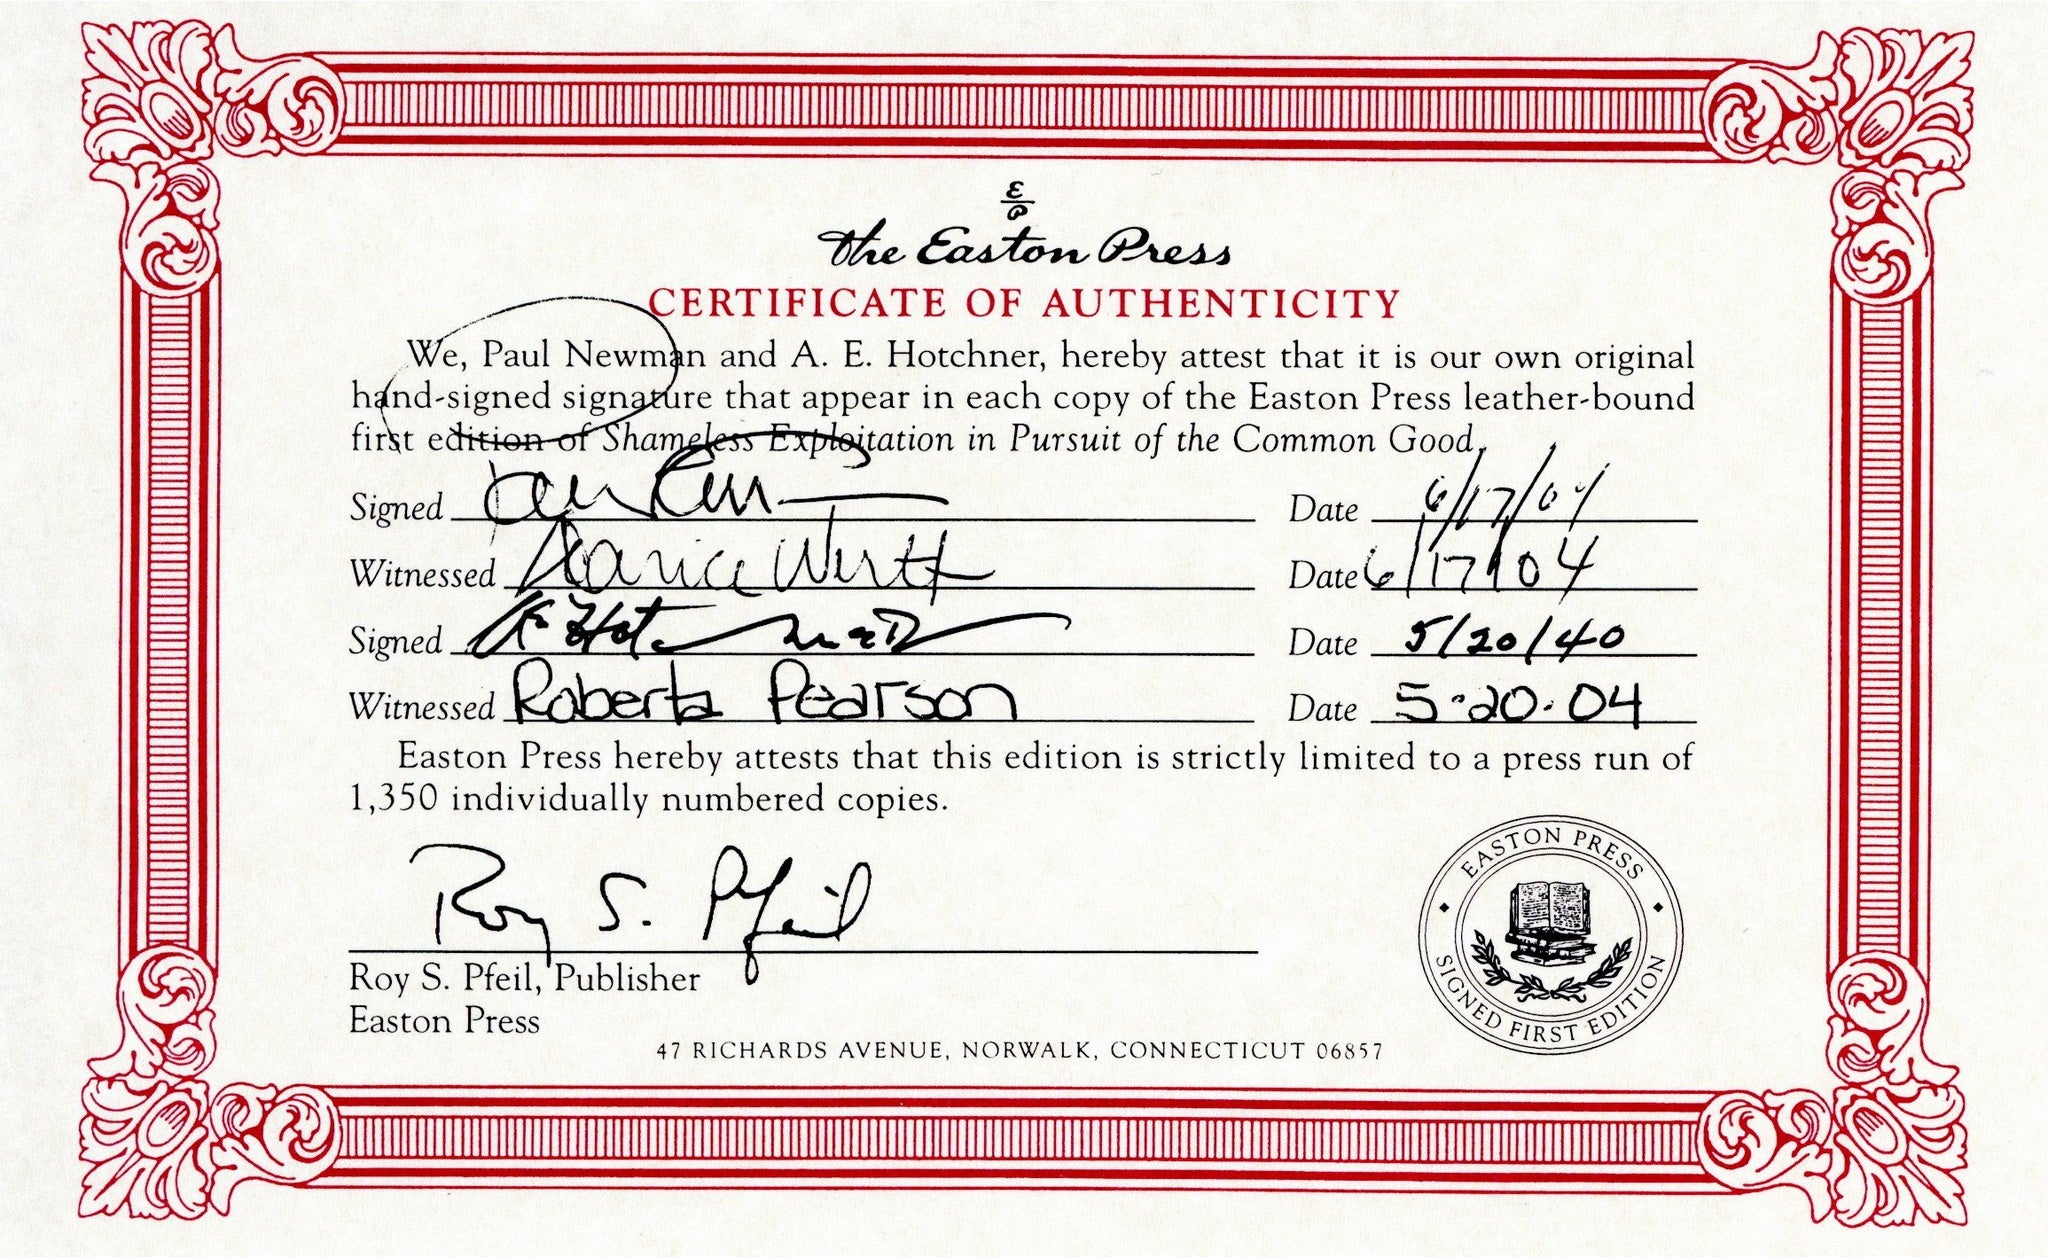 E
P
The Easton Press
CERTIFICATE OF AUTHENTICITY
We, Paul Newman and A. E. Hotchner, hereby attest that it is our own original
hand-signed signature that appear in each copy of the Easton Press leather-bound
first edition of Shameless Exploitation in Pursuit of the Common Good.
Signed Date 6/17/04
Witnessed Date 6/17/04
Signed Date 5/20/40
Witnessed Roberta Pearson Date 5·20·04
Easton Press hereby attests that this edition is strictly limited to a press run of
1,350 individually numbered copies.
Roy S. Pfeil
Roy S. Pfeil, Publisher
Easton Press
EASTON PRESS
SIGNED FIRST EDITION
47 RICHARDS AVENUE, NORWALK, CONNECTICUT 06857